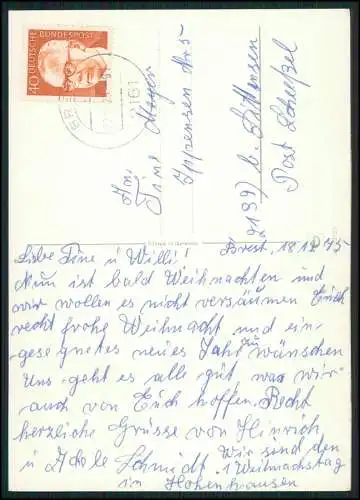 40
DEUTSCHE BUNDESPOST
2161
An:
Tine Meyer
Ippensen Nr 5
2139) b. Sittensen
Post Scheeßel
Brest, 18.12.75
Liebe Tine u Willi!
Nun ist bald Weihnachten und
wir wollen es nicht versäumen Euch
recht frohe Weihnacht und ein-
gesegnetes neues Jahr zu wünschen
Uns geht es alle gut was wir
auch von Euch hoffen. Recht
herzliche Grüsse von Hinrich
u Adele Schmidt
Wir sind den
1 Weihnachstag
in Hohenhausen